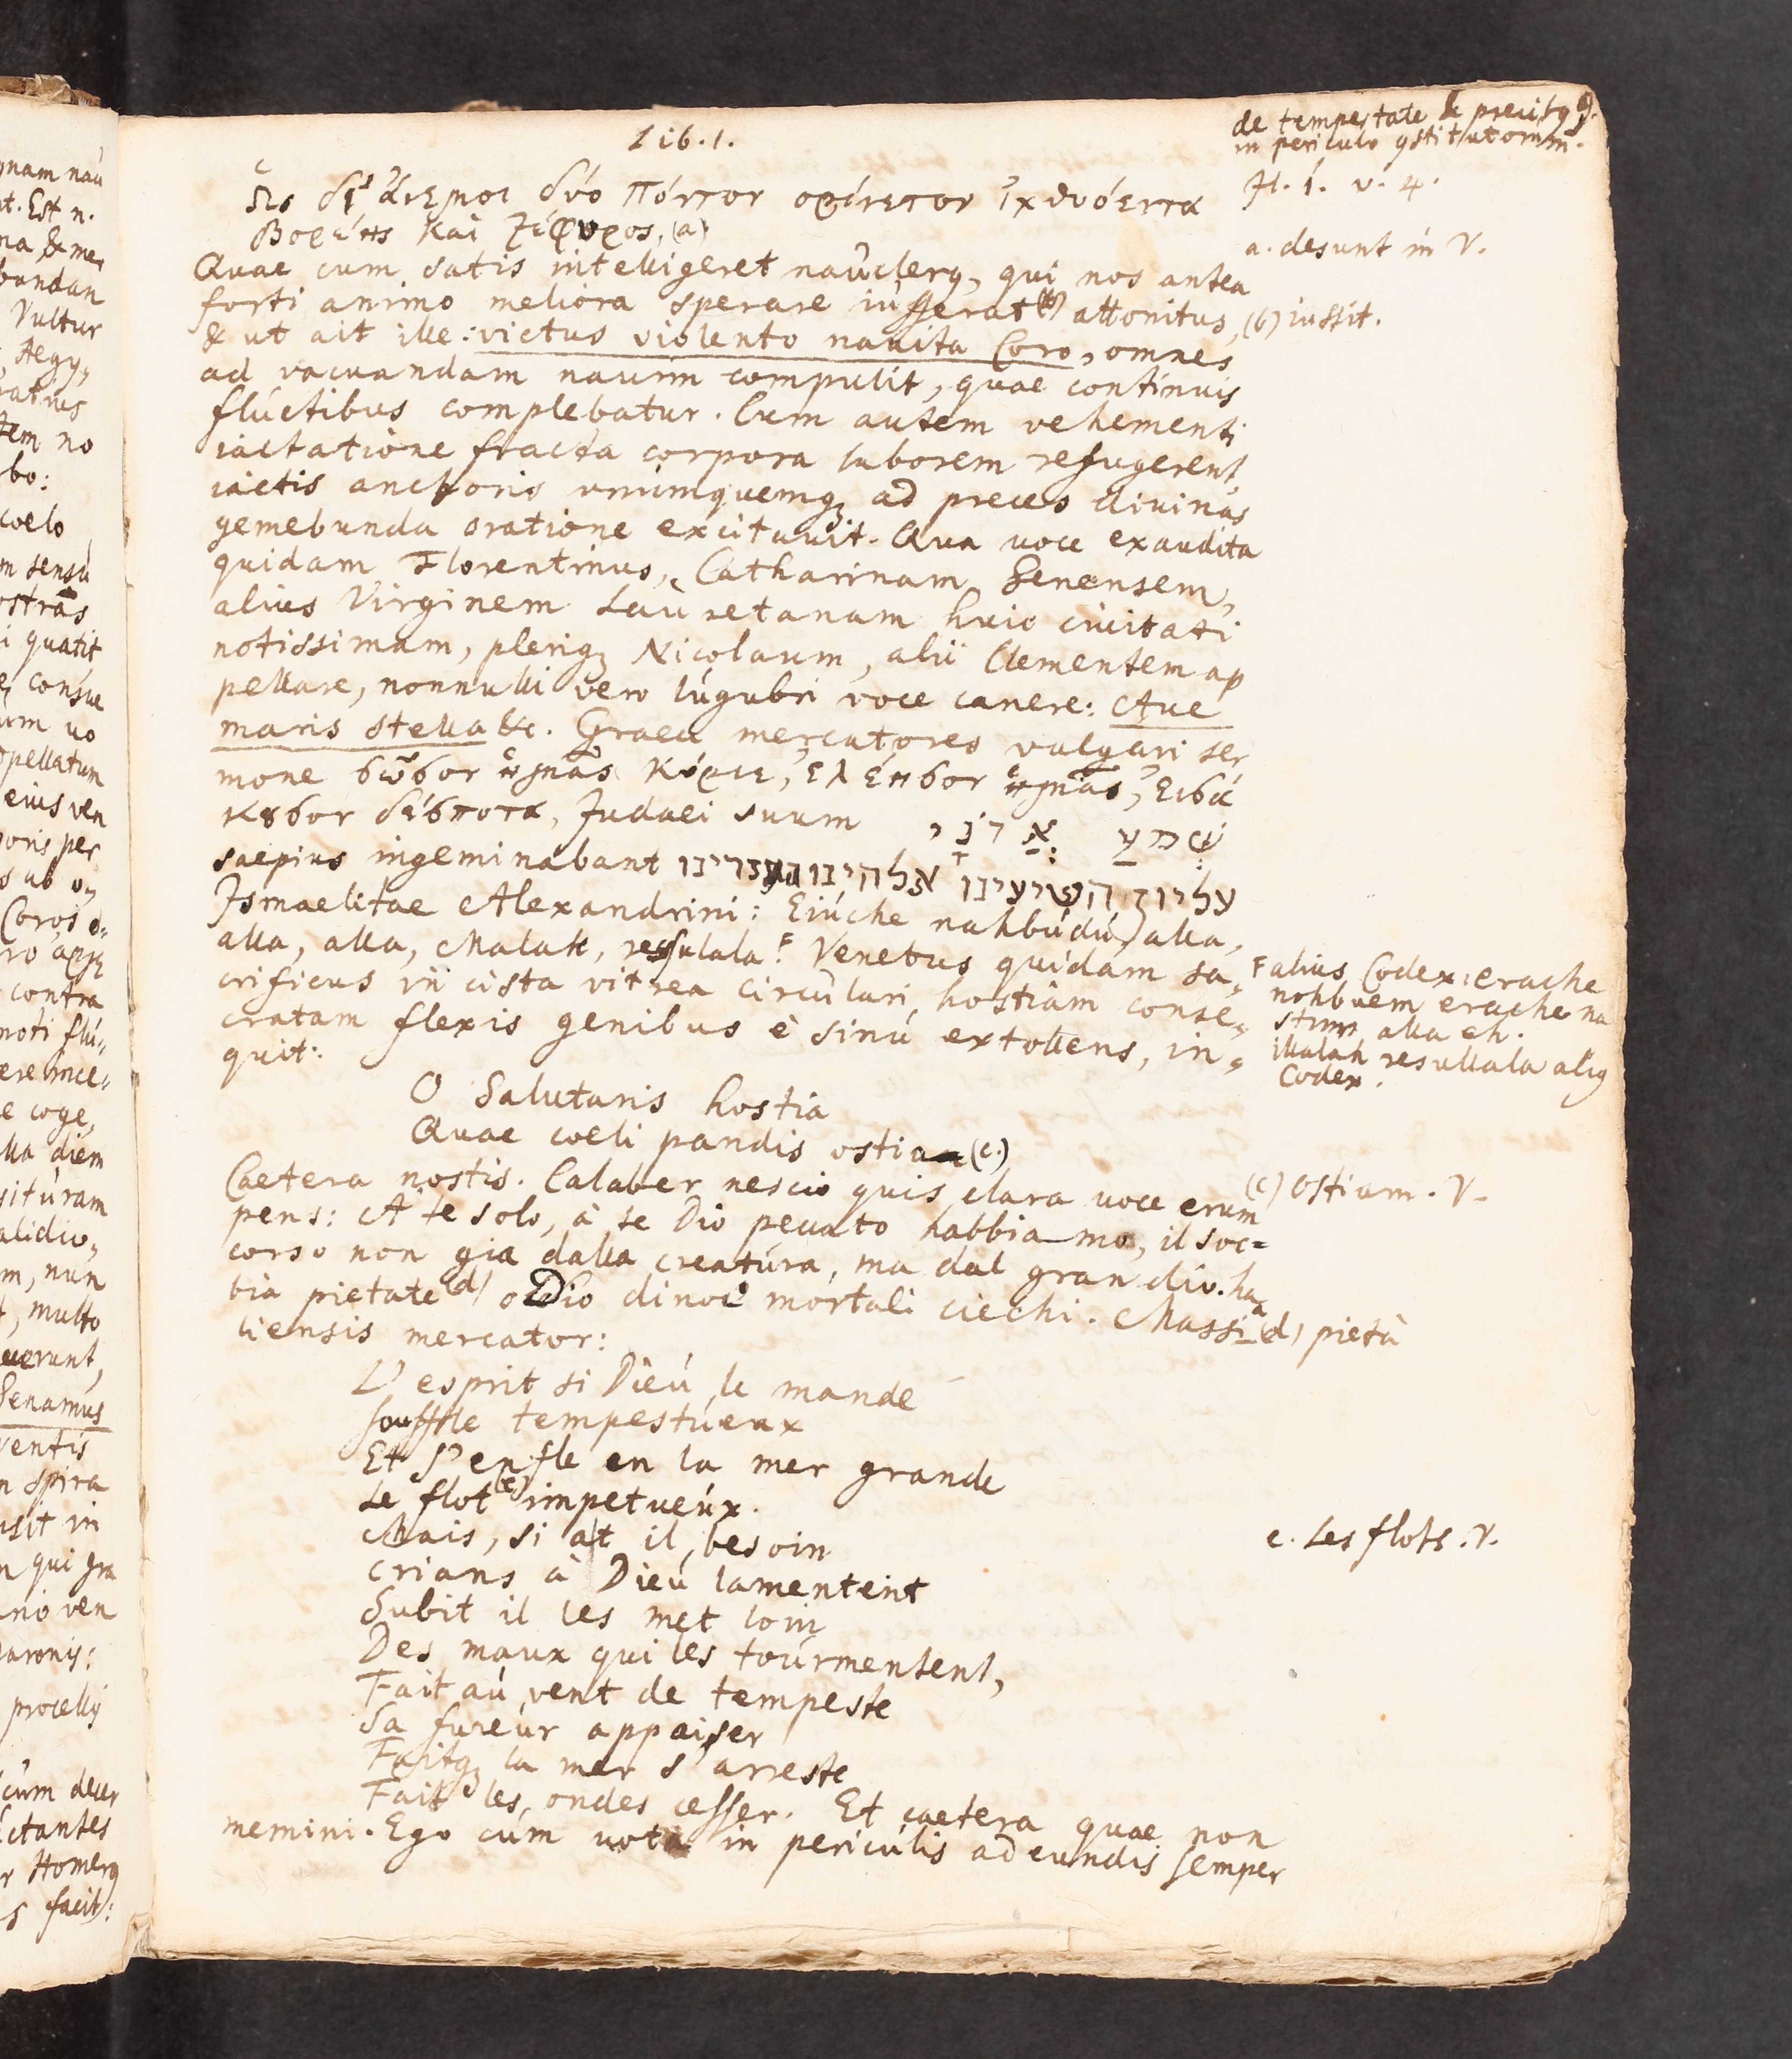 Lib. 1.
de tempestate & precibus
in periculo constitutorum.
Il. 1. v. 4.
Ὡς δ' ἄνεμοι δύο πόντον ὀρίνετον ἰχθυόεντα
Βορέης καὶ Ζέφυρος, (a)
a. desunt in V.
Quae cum satis intelligeret nauclerus, qui nos antea
forti animo meliora sperare iusserat (b) attonitus,
(b) iussit.
& ut ait ille: victus violento nauita Coro, omnes
ad vacuandam nauim compulit, quae continuis
fluctibus complebatur. Cum autem vehementi
iactatione fracta corpora laborem refugerent,
iactis anchoris vnumquemq; ad preces diuinas
gemebunda oratione excitauit. Qua voce exaudita
quidam Florentinus, Catharinam Senensem,
alius Virginem Lauretanam huic ciuitati
notissimam, pleriq; Nicolaum, alii Clementem ap
pellare, nonnulli vero lúgubri voce canere: Aue
maris stella &c. Graeci mercatores vulgari ser
mone σῶσον ἡμᾶς Κύριε, ἐλέησον ἡμᾶς, εἰσά
κουσον δέσποτα, Judaei suum שמע אדני
saepius ingeminabant עליון הושיעינו אלהינו
Ismaelitae Alexandrini: Eiúche nahbúdú alla,
alla, alla, Malak, ressulala. F Venetus quidam sa,,
crificus in cista vitrea circulari, hostiam conse,,
cratam flexis genibus è sinú extollens, in,,
quit:
F alius Codex: erache
nohbuem erache na
stum alla eh.
illalah resullala alius
Codex.
O Salutaris hostia
Quae coeli pandis ostium (c.)
Caetera nostis. Calaber nescio quis clara voce erum
(c) Ostium. V.
pens: A te solo, à te Dio peccato habbiamo, il soc=
corso non gia dalla creatúra, ma dal gran dio. ha
bia pietate (d) o Dio di noi mortali ciechi. Massi
(d) pietà
liensis mercator:
L' esprit si Dieú le mande
souffle tempestúeux
Et s' enfle en la mer grande
Le flot (e) impetueúx.
e. Les flots. V.
Mais, si at il, besoin
crians à Dieú lamentent
Subit il les met loin
Des maux qui les toúrmentent,
Fait aú vent de tempeste
Sa fureúr appaiser
Faitq; la mer s' arreste
Fait les ondes cesser. Et caetera quae non
memini. Ego cúm vota in pericúlis adeundis semper